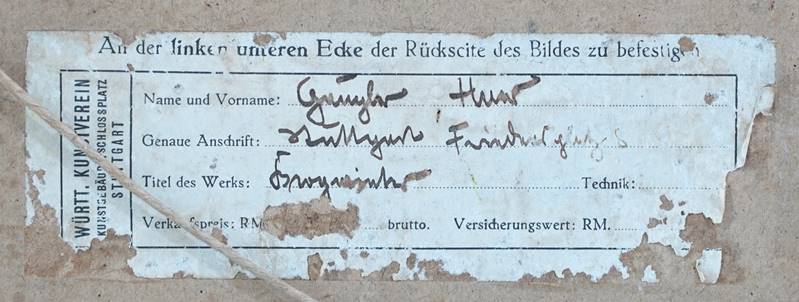 An der linken unteren Ecke der Rückseite des Bildes zu befestigen
WÜRTT. KUNSTVEREIN
KUNSTGEBÄUDE SCHLOSSPLATZ
STUTTGART
Name und Vorname:
Genaue Anschrift: Stuttgart
Titel des Werks: Technik:
Verkaufspreis: RM brutto. Versicherungswert: RM.